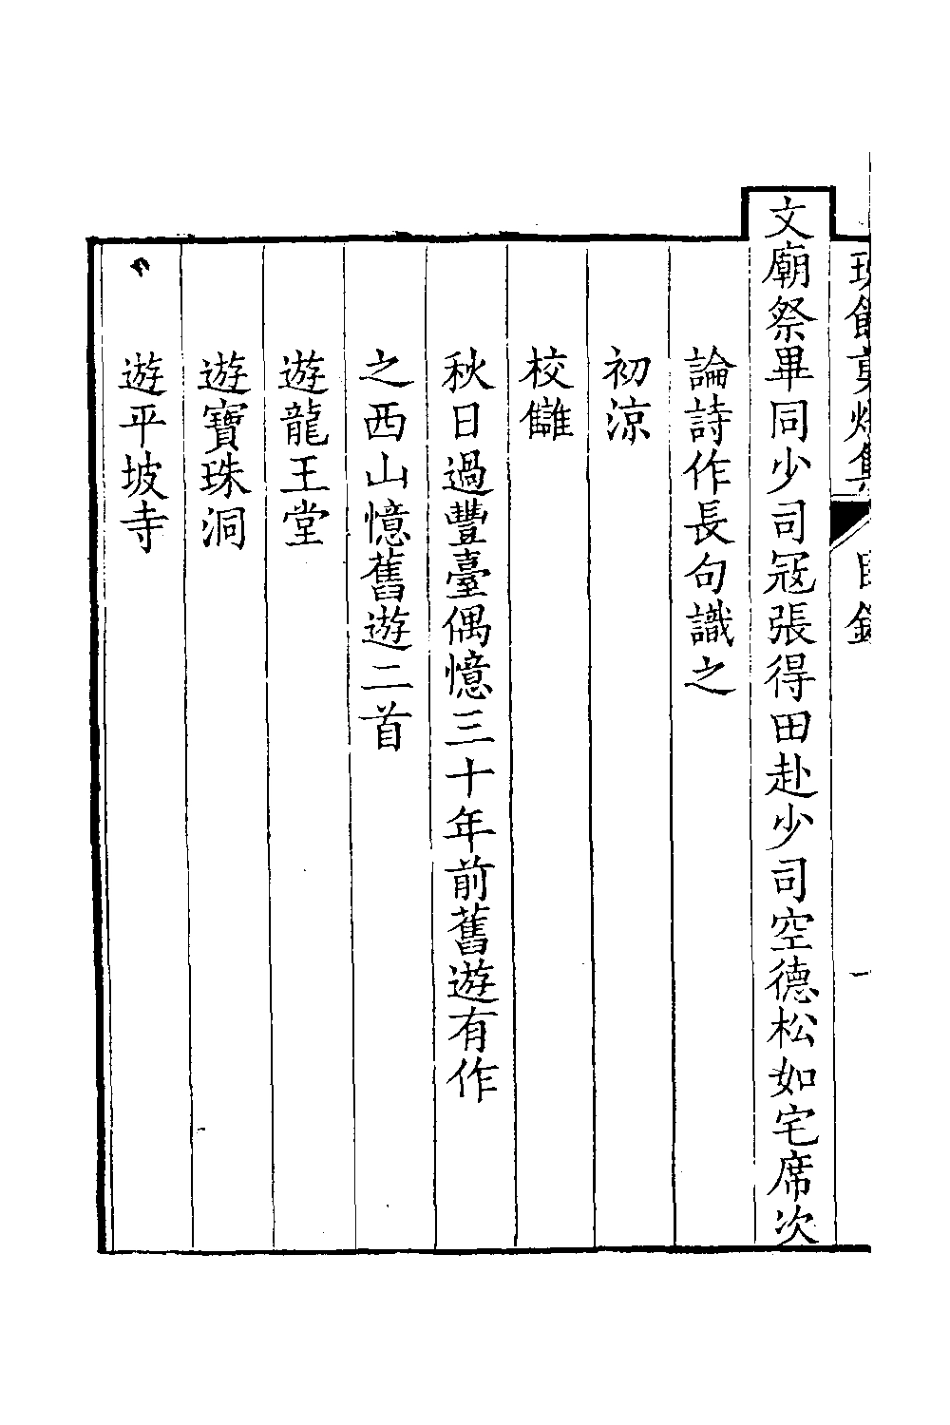 文廟祭畢同少司冦張得田赴少司空德松如宅席次
論詩作長句識之
初涼
校讎
秋日過豐臺偶憶三十年前舊遊有作
之西山憶舊遊二首
遊龍王堂
遊寶珠洞
遊平坡寺